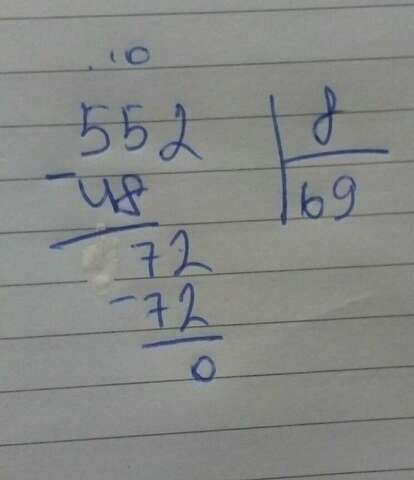 .10
552 8
-48 69
72
-72
0